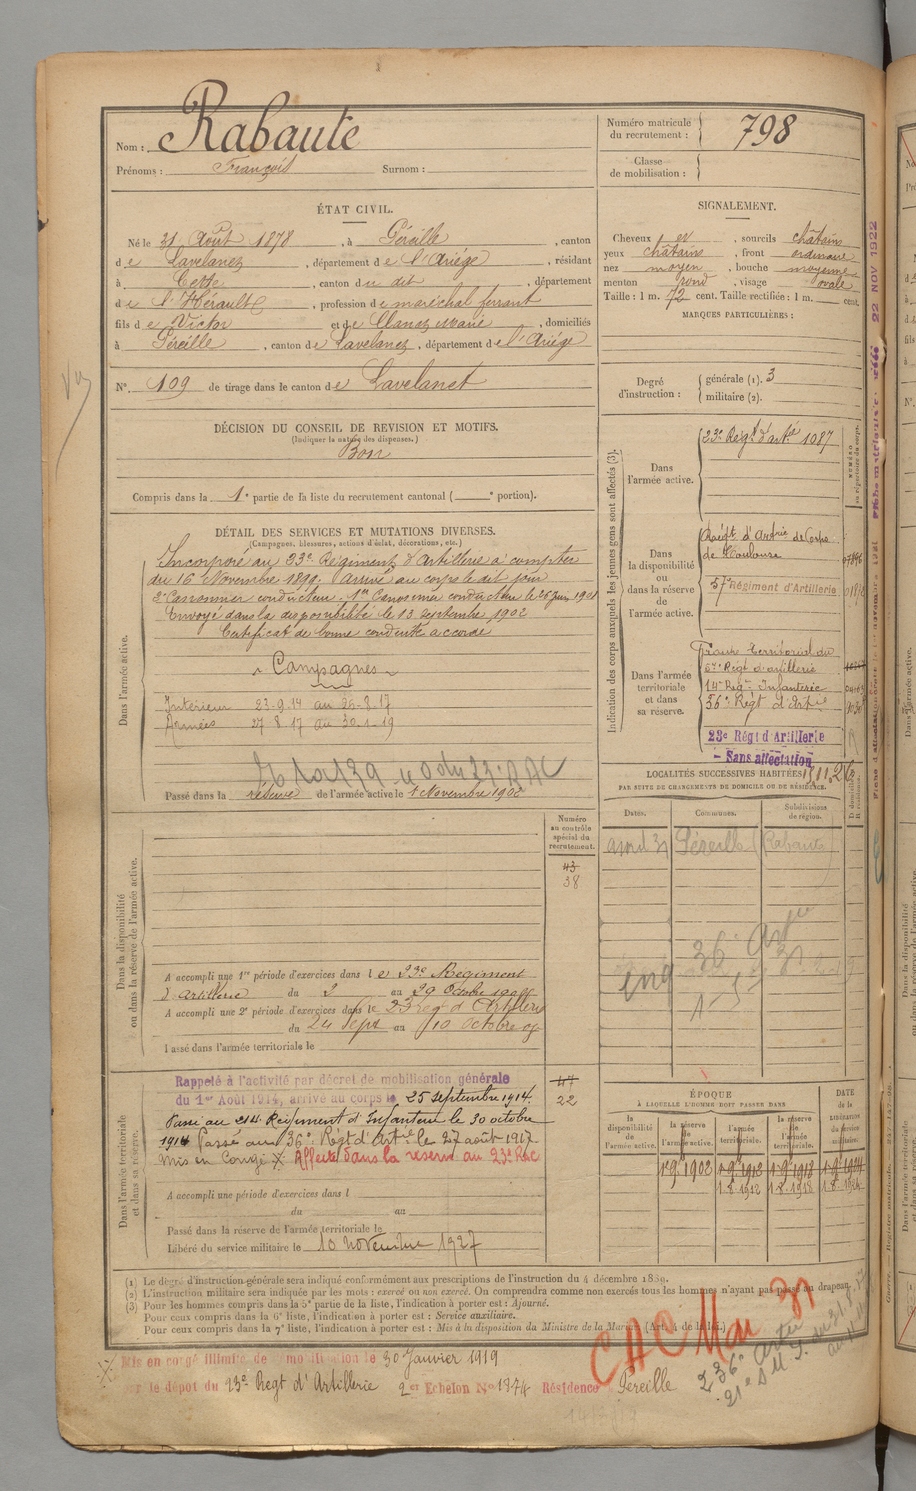 Nom : Rabaute
Prénoms : François Surnom :
Numéro matricule du recrutement : 798
Classe de mobilisation :
ÉTAT CIVIL.
Né le 31 Août 1878, à Péreille, canton
de Lavelanet, département de l'Ariège, résidant
à Cette, canton du dit, département
de l'Hérault, profession de maréchal ferrant
fils de Victor et de Clanet Marie, domiciliés
à Péreille, canton de Lavelanet, département de l'Ariège
N° 109 de tirage dans le canton de Lavelanet
SIGNALEMENT.
Cheveux et, sourcils châtains
yeux châtains, front ordinaire
nez moyen, bouche moyenne
menton rond, visage ovale
Taille : 1 m. 72 cent. Taille rectifiée : 1 m. cent.
MARQUES PARTICULIÈRES :
Degré d'instruction : générale (1). 3
militaire (2).
DÉCISION DU CONSEIL DE REVISION ET MOTIFS.
(Indiquer la nature des dispenses.)
Bon
Compris dans la 1e partie de la liste du recrutement cantonal ( e portion).
DÉTAIL DES SERVICES ET MUTATIONS DIVERSES.
(Campagnes, blessures, actions d'éclat, décorations, etc.)
Dans l'armée active.
Incorporé au 23e Régiment d'Artillerie à compter
du 16 Novembre 1899. Arrivé au corps le dit jour
2e Canonnier conducteur. 1er Canonnier conducteur le 26 juin 1901
Envoyé dans la disponibilité le 13 Septembre 1902
Certificat de bonne conduite accordé
Campagnes
Intérieur 23-9-14 au 26-8-17
Armées 27-8-17 au 30-1-19
Passé dans la réserve de l'armée active le 1 Novembre 1902
Indication des corps auxquels les jeunes gens sont affectés (3).
NUMÉRO au répertoire du corps.
Dans l'armée active.
23e Régt d'artie 1087
Dans la disponibilité ou dans la réserve de l'armée active.
Régt d'Artrie de Corps
de Toulouse
57e Régiment d'Artillerie
Dans l'armée territoriale et dans sa réserve.
Territorial du
57e Régt d'artillerie
14e Régt Infanterie
56e Régt d'Artie
23e Régt d'Artillerie
- Sans affectation
LOCALITÉS SUCCESSIVES HABITÉES
PAR SUITE DE CHANGEMENTS DE DOMICILE OU DE RÉSIDENCE.
Dates. Communes. Subdivisions de région.
avril 31 Péreille Rabaute
36 Artie
Numéro au contrôle spécial du recrutement.
43
38
Dans la disponibilité ou dans la réserve de l'armée active.
A accompli une 1re période d'exercices dans le 23e Régiment
d'artillerie du 2 au 29 Octobre
A accompli une 2e période d'exercices dans le 23 reg d'Artillerie
du 24 Sept au 10 Octobre 09
Passé dans l'armée territoriale le
Dans l'armée territoriale et dans sa réserve.
Rappelé à l'activité par décret de mobilisation générale
du 1er Août 1914, arrivé au corps le 25 septembre 1914.
Passé au 214e Régiment d'Infanterie le 30 octobre
1914 Passé au 36e Régt d'Artie le 27 août 1917
mis en Congé X Affecté dans la réserve au 23e RAC
47
22
A accompli une période d'exercices dans l
du au
Passé dans la réserve de l'armée territoriale le
Libéré du service militaire le 10 novembre 1927
ÉPOQUE
À LAQUELLE L'HOMME DOIT PASSER DANS
DATE de la LIBÉRATION du service militaire.
la disponibilité de l'armée active. la réserve de l'armée active. l'armée territoriale. la réserve de l'armée territoriale.
1.9.1902 1.9.1912 1.9.1918 1.9.1924
1.8.1912 1.8.1918 1.8.1924
(1) Le degré d'instruction générale sera indiqué conformément aux prescriptions de l'instruction du 4 décembre 1889.
(2) L'instruction militaire sera indiquée par les mots : exercé ou non exercé. On comprendra comme non exercés tous les hommes n'ayant pas passé au drapeau.
(3) Pour les hommes compris dans la 5e partie de la liste, l'indication à porter est : Ajourné.
Pour ceux compris dans la 6e liste, l'indication à porter est : Service auxiliaire.
Pour ceux compris dans la 7e liste, l'indication à porter est : Mis à la disposition du Ministre de la Marine (Art. 4 de la loi.)
CAC Mai 31
Mis en congé illimité de démobilisation le 30 Janvier 1919
par le dépot du 23e Régt d'Artillerie 2er Echelon No 1374 Résidence Péreille
22 NOV 1922